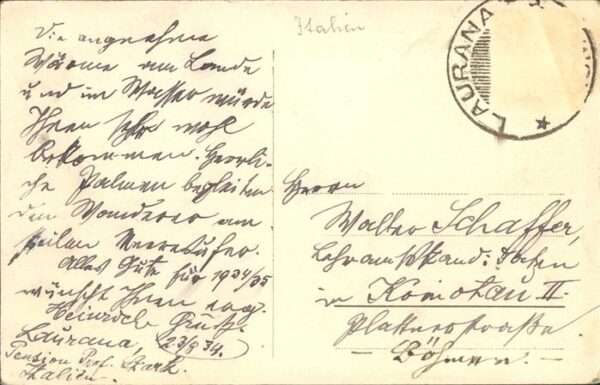 Italien
LAURANA
Die angenehme
Wärme am Lande
und im Wasser würde
Ihnen sehr wohl
bekommen. Herrli-
che Palmen begleiten
den Wanderer am
steilen Meeresufer.
Alles Gute für 1934/35
wünscht Ihnen erg.
Heinrich
Laurana, 23/8 34.
Pension Prof. Stark.
Italien.
Herrn
Walter Schaffer,
Lehramtskand:
in Komotau II.
Plattnerstraße.
– Böhmen. –